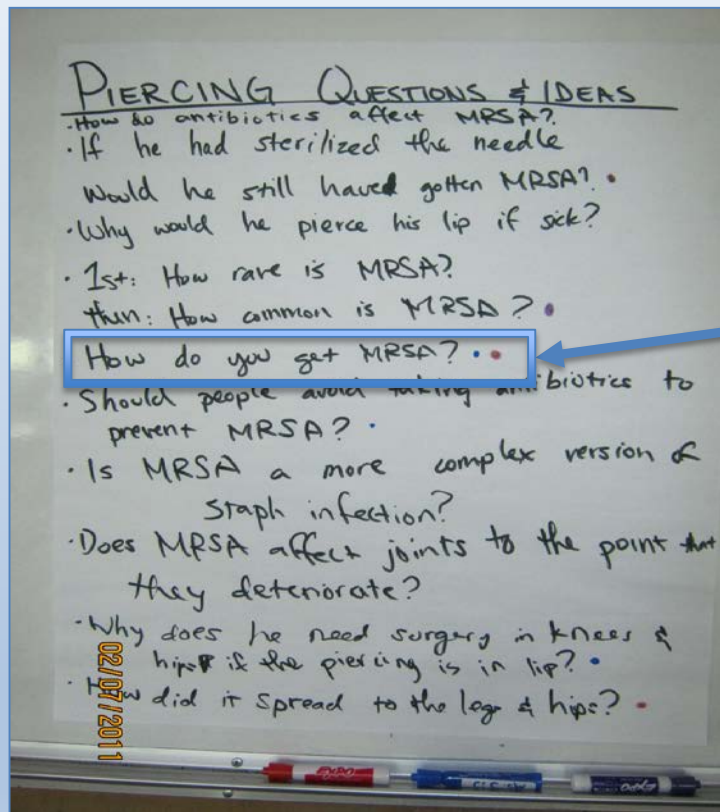 PIERCING QUESTIONS & IDEAS
· How do antibiotics affect MRSA?
· If he had sterilized the needle
would he still haved gotten MRSA?
· Why would he pierce his lip if sick?
· 1st: How rare is MRSA?
then: How common is MRSA?
How do you get MRSA?
· Should people avoid taking antibiotics to
prevent MRSA?
· Is MRSA a more complex version of
staph infection?
· Does MRSA affect joints to the point that
they deteriorate?
· Why does he need surgery in knees &
hips if the piercing is in lip?
· How did it spread to the legs & hips?
02/07/2011
EXPO
EXPO